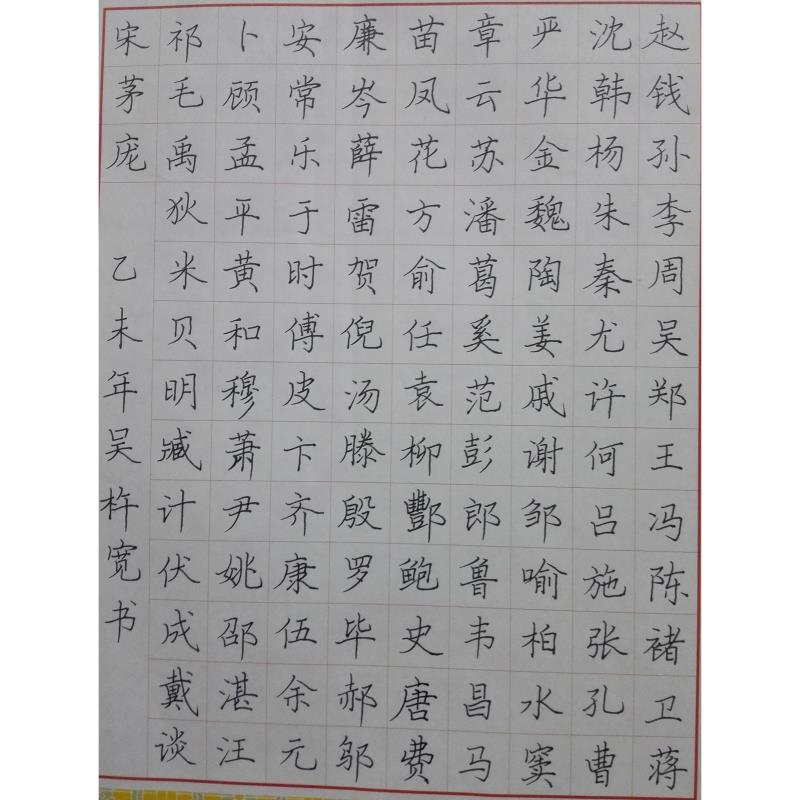 赵钱孙李周吴郑王冯陈褚卫蒋
沈韩杨朱秦尤许何吕施张孔曹
严华金魏陶姜戚谢邹喻柏水窦
章云苏潘葛奚范彭郎鲁韦昌马
苗凤花方俞任袁柳酆鲍史唐费
廉岑薛雷贺倪汤滕殷罗毕郝邬
安常乐于时傅皮卞齐康伍余元
卜顾孟平黄和穆萧尹姚邵湛汪
祁毛禹狄米贝明臧计伏成戴谈
宋茅庞 乙未年吴杵宽书